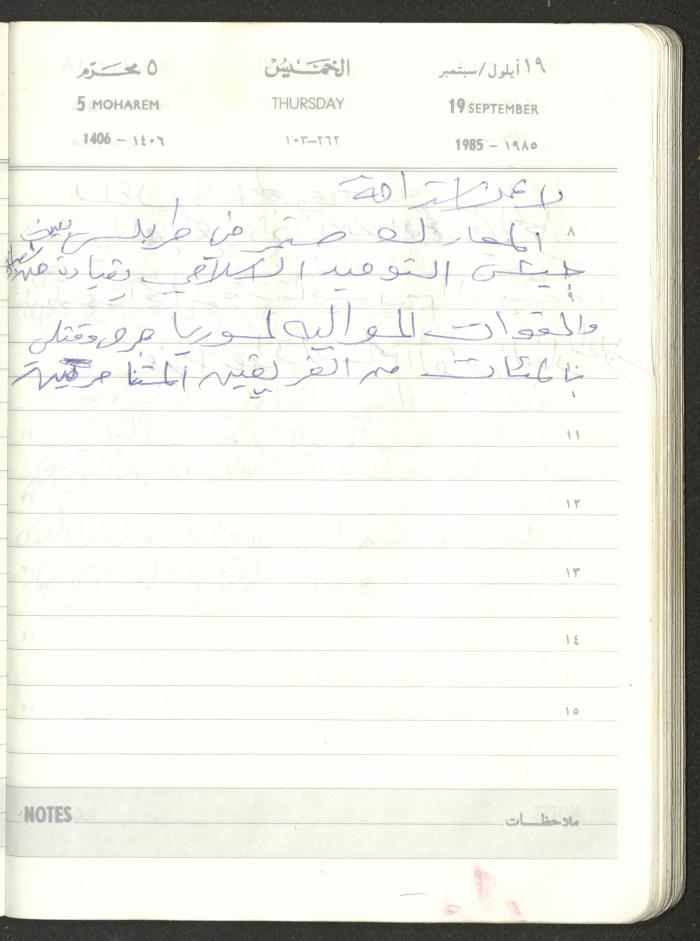 ١٩ أيلول/سبتمبر الخميس ٥ محرّم
19 SEPTEMBER THURSDAY 5 MOHAREM
١٩٨٥ - 1985 ٢٦٢-١٠٣ ١٤٠٦ - 1406
استراحة
المعارك مستمر في طرابلس بين
٨
جيش التوحيد الاسلامي بقيادة
٩
والقوات الموالية لسوريا جرحى وقتلى
بالمئات من الفريقين المتناحرين
١١
١٢
١٣
١٤
١٥
NOTES ملاحظات